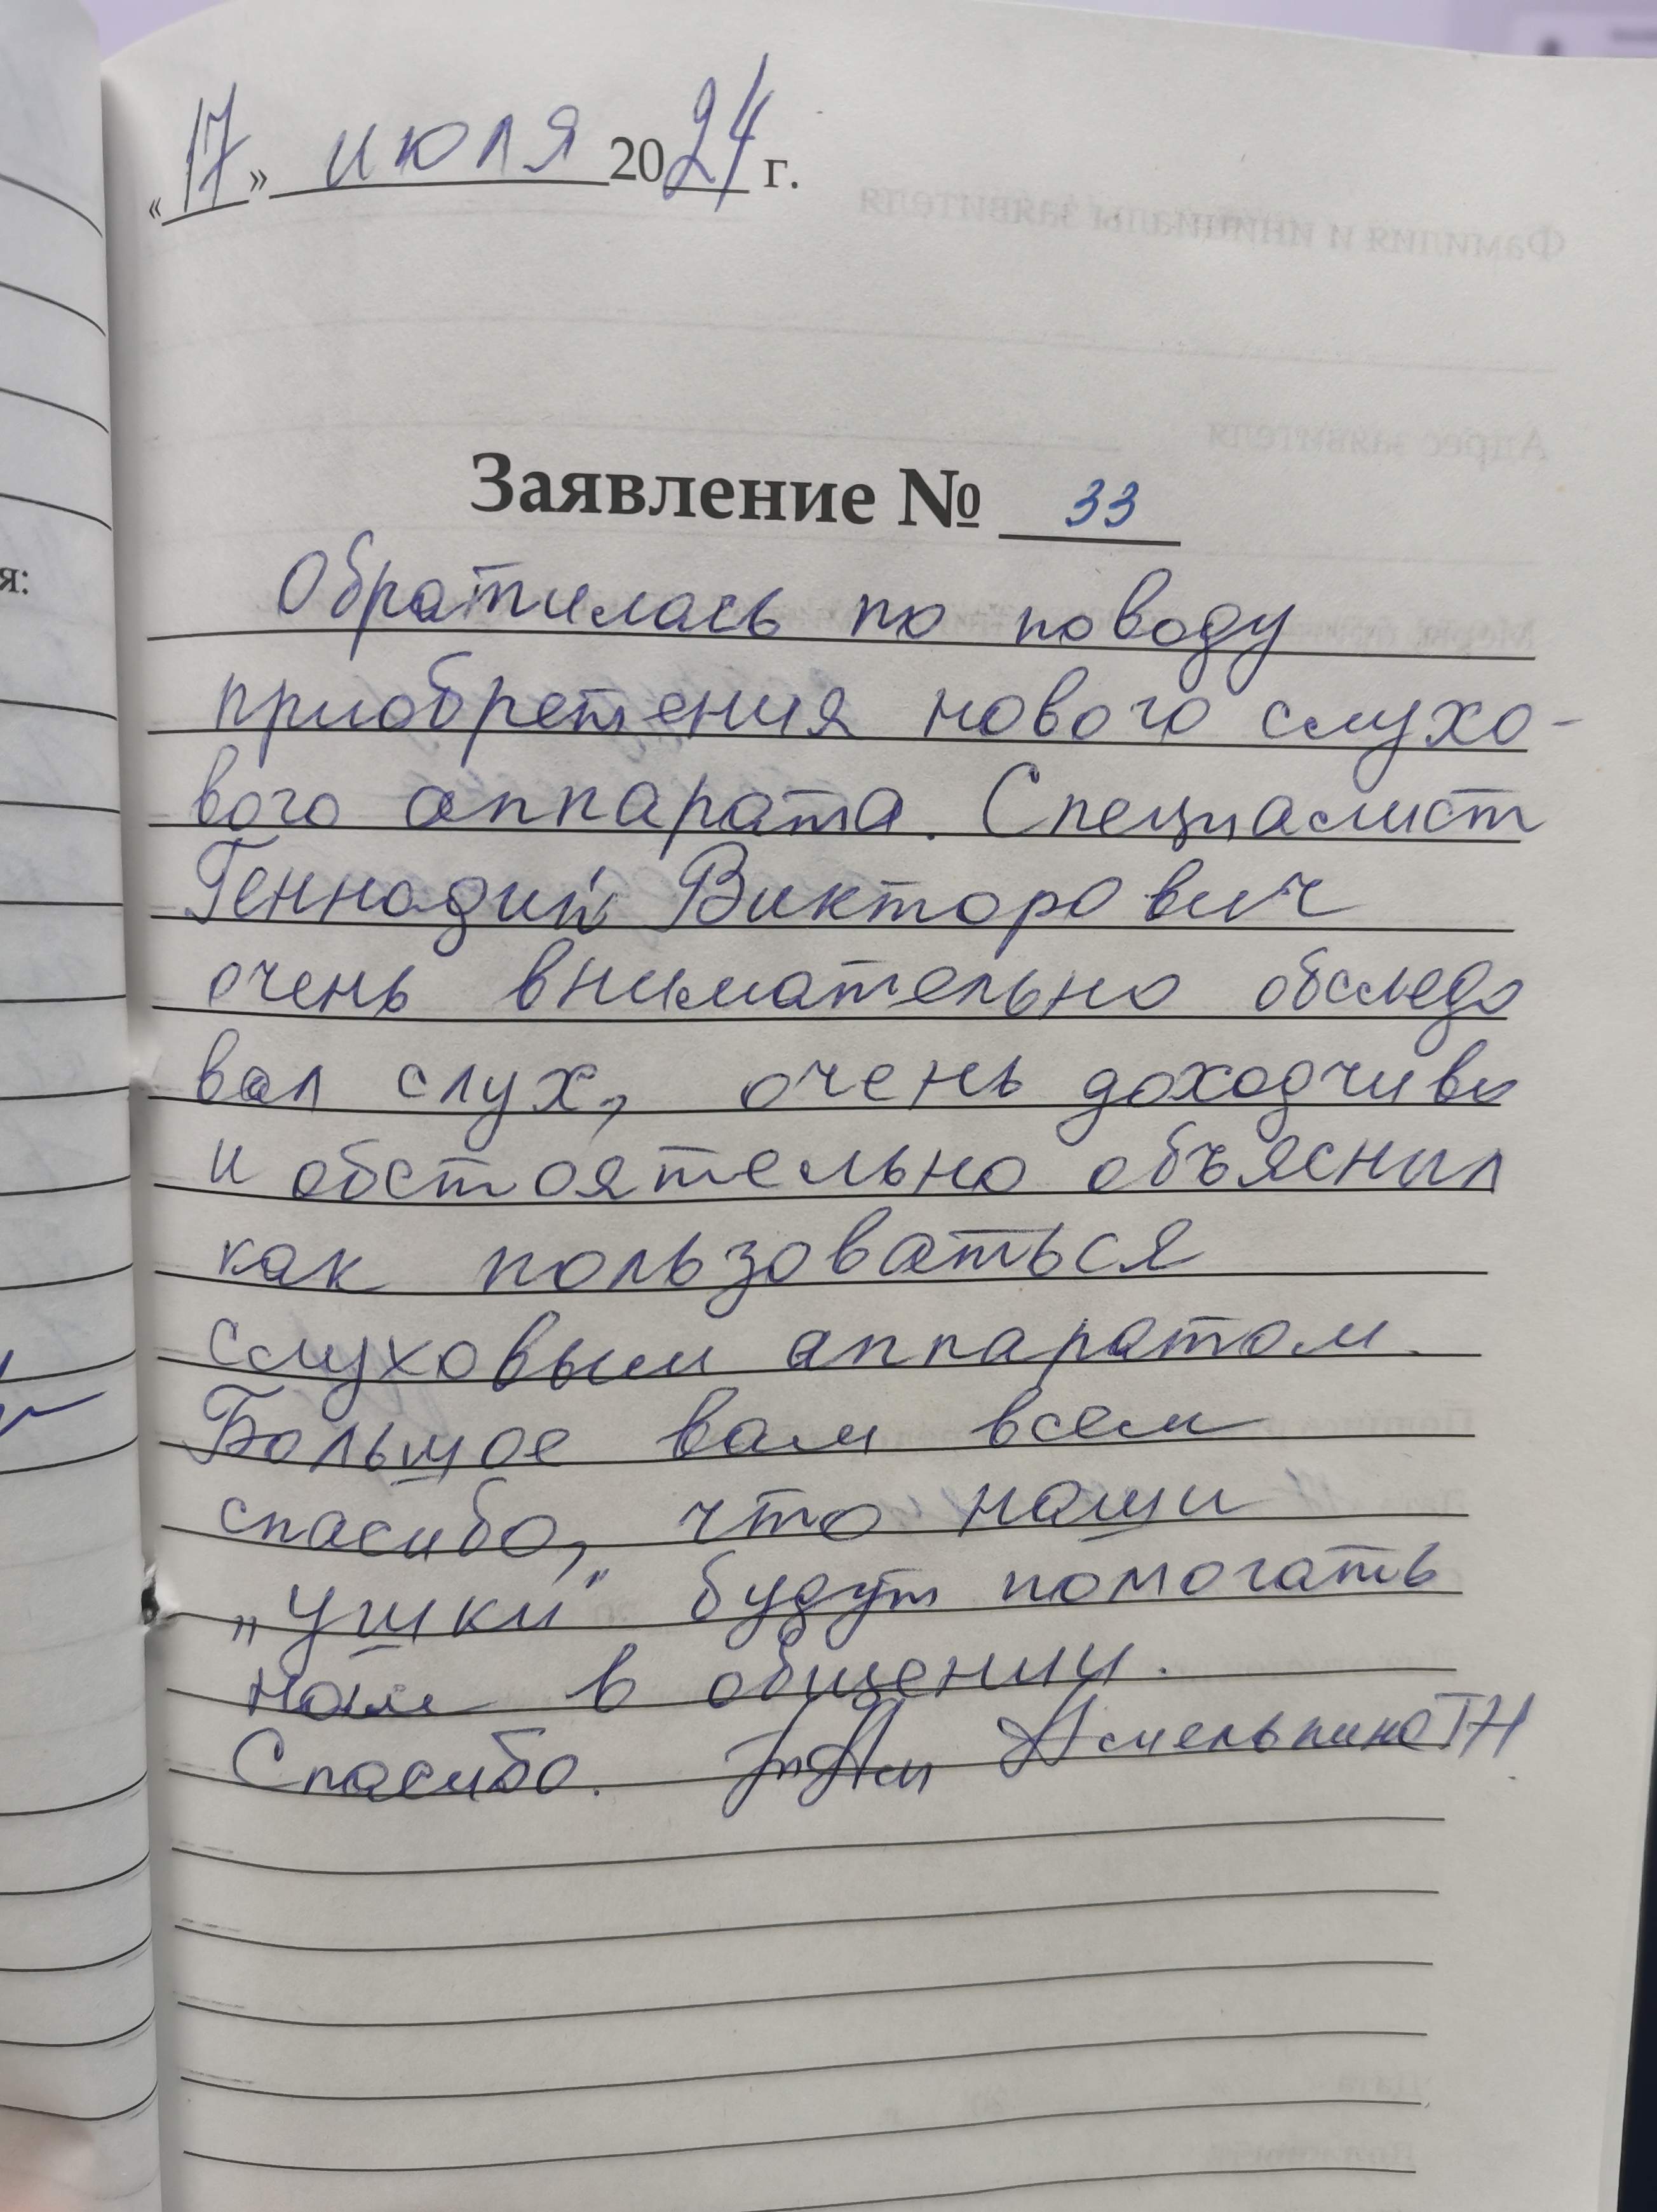 «17» июля 2024 г.
Заявление № 33
Обратилась по поводу
приобретения нового слухо-
вого аппарата. Специалист
Геннадий Викторович
очень внимательно обследо
вал слух, очень доходчиво
и обстоятельно объяснил
как пользоваться
слуховым аппаратом.
Большое вам всем
спасибо, что наши
„ушки" будут помогать
нам в общении.
Спасибо.
я:
Фамилия и инициалы заявителя
Адрес заявителя